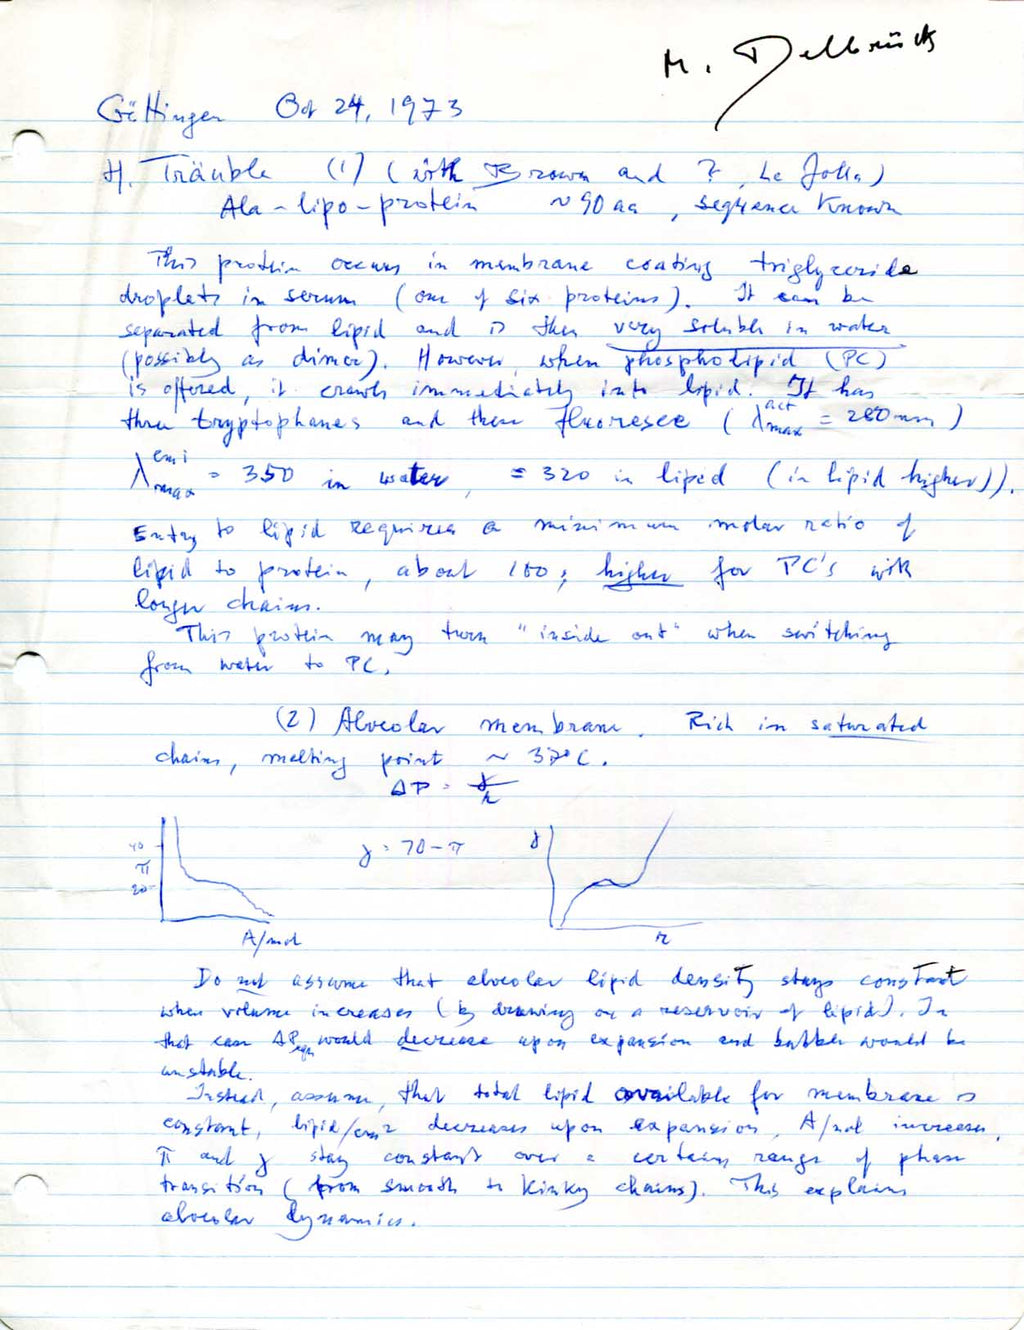 M. Delbrück
Göttingen Oct 24, 1973
H. Träuble (1) (with Brown and ?, La Jolla)
Ala-lipo-protein ~90 aa, sequence known
This protein occurs in membrane coating triglyceride
droplets in serum (one of six proteins). It can be
separated from lipid and is then very soluble in water
(possibly as dimer). However, when phospholipid (PC)
is offered, it crawls immediately into lipid. It has
three tryptophanes and these fluoresce (λ act max = 280 nm)
λ emi max = 350 in water, = 320 in lipid (in lipid higher)).
Entry to lipid requires a minimum molar ratio of
lipid to protein, about 100; higher for PC's with
longer chains.
This protein may turn "inside out" when switching
from water to PC.
(2) Alveolar membrane. Rich in saturated
chains, melting point ~ 37°C.
ΔP = γ/r
40
π
20
A/mol
γ = 70 - π
γ
r
Do not assume that alveolar lipid density stays constant
when volume increases (by drawing on a reservoir of lipid). In
that case ΔP would decrease upon expansion and bubble would be
unstable.
Instead, assume, that total lipid available for membrane is
constant, lipid/cm² decreases upon expansion, A/mol increases,
π and γ stay constant over a certain range of phase
transition (from smooth to kinky chains). This explains
alveolar dynamics.